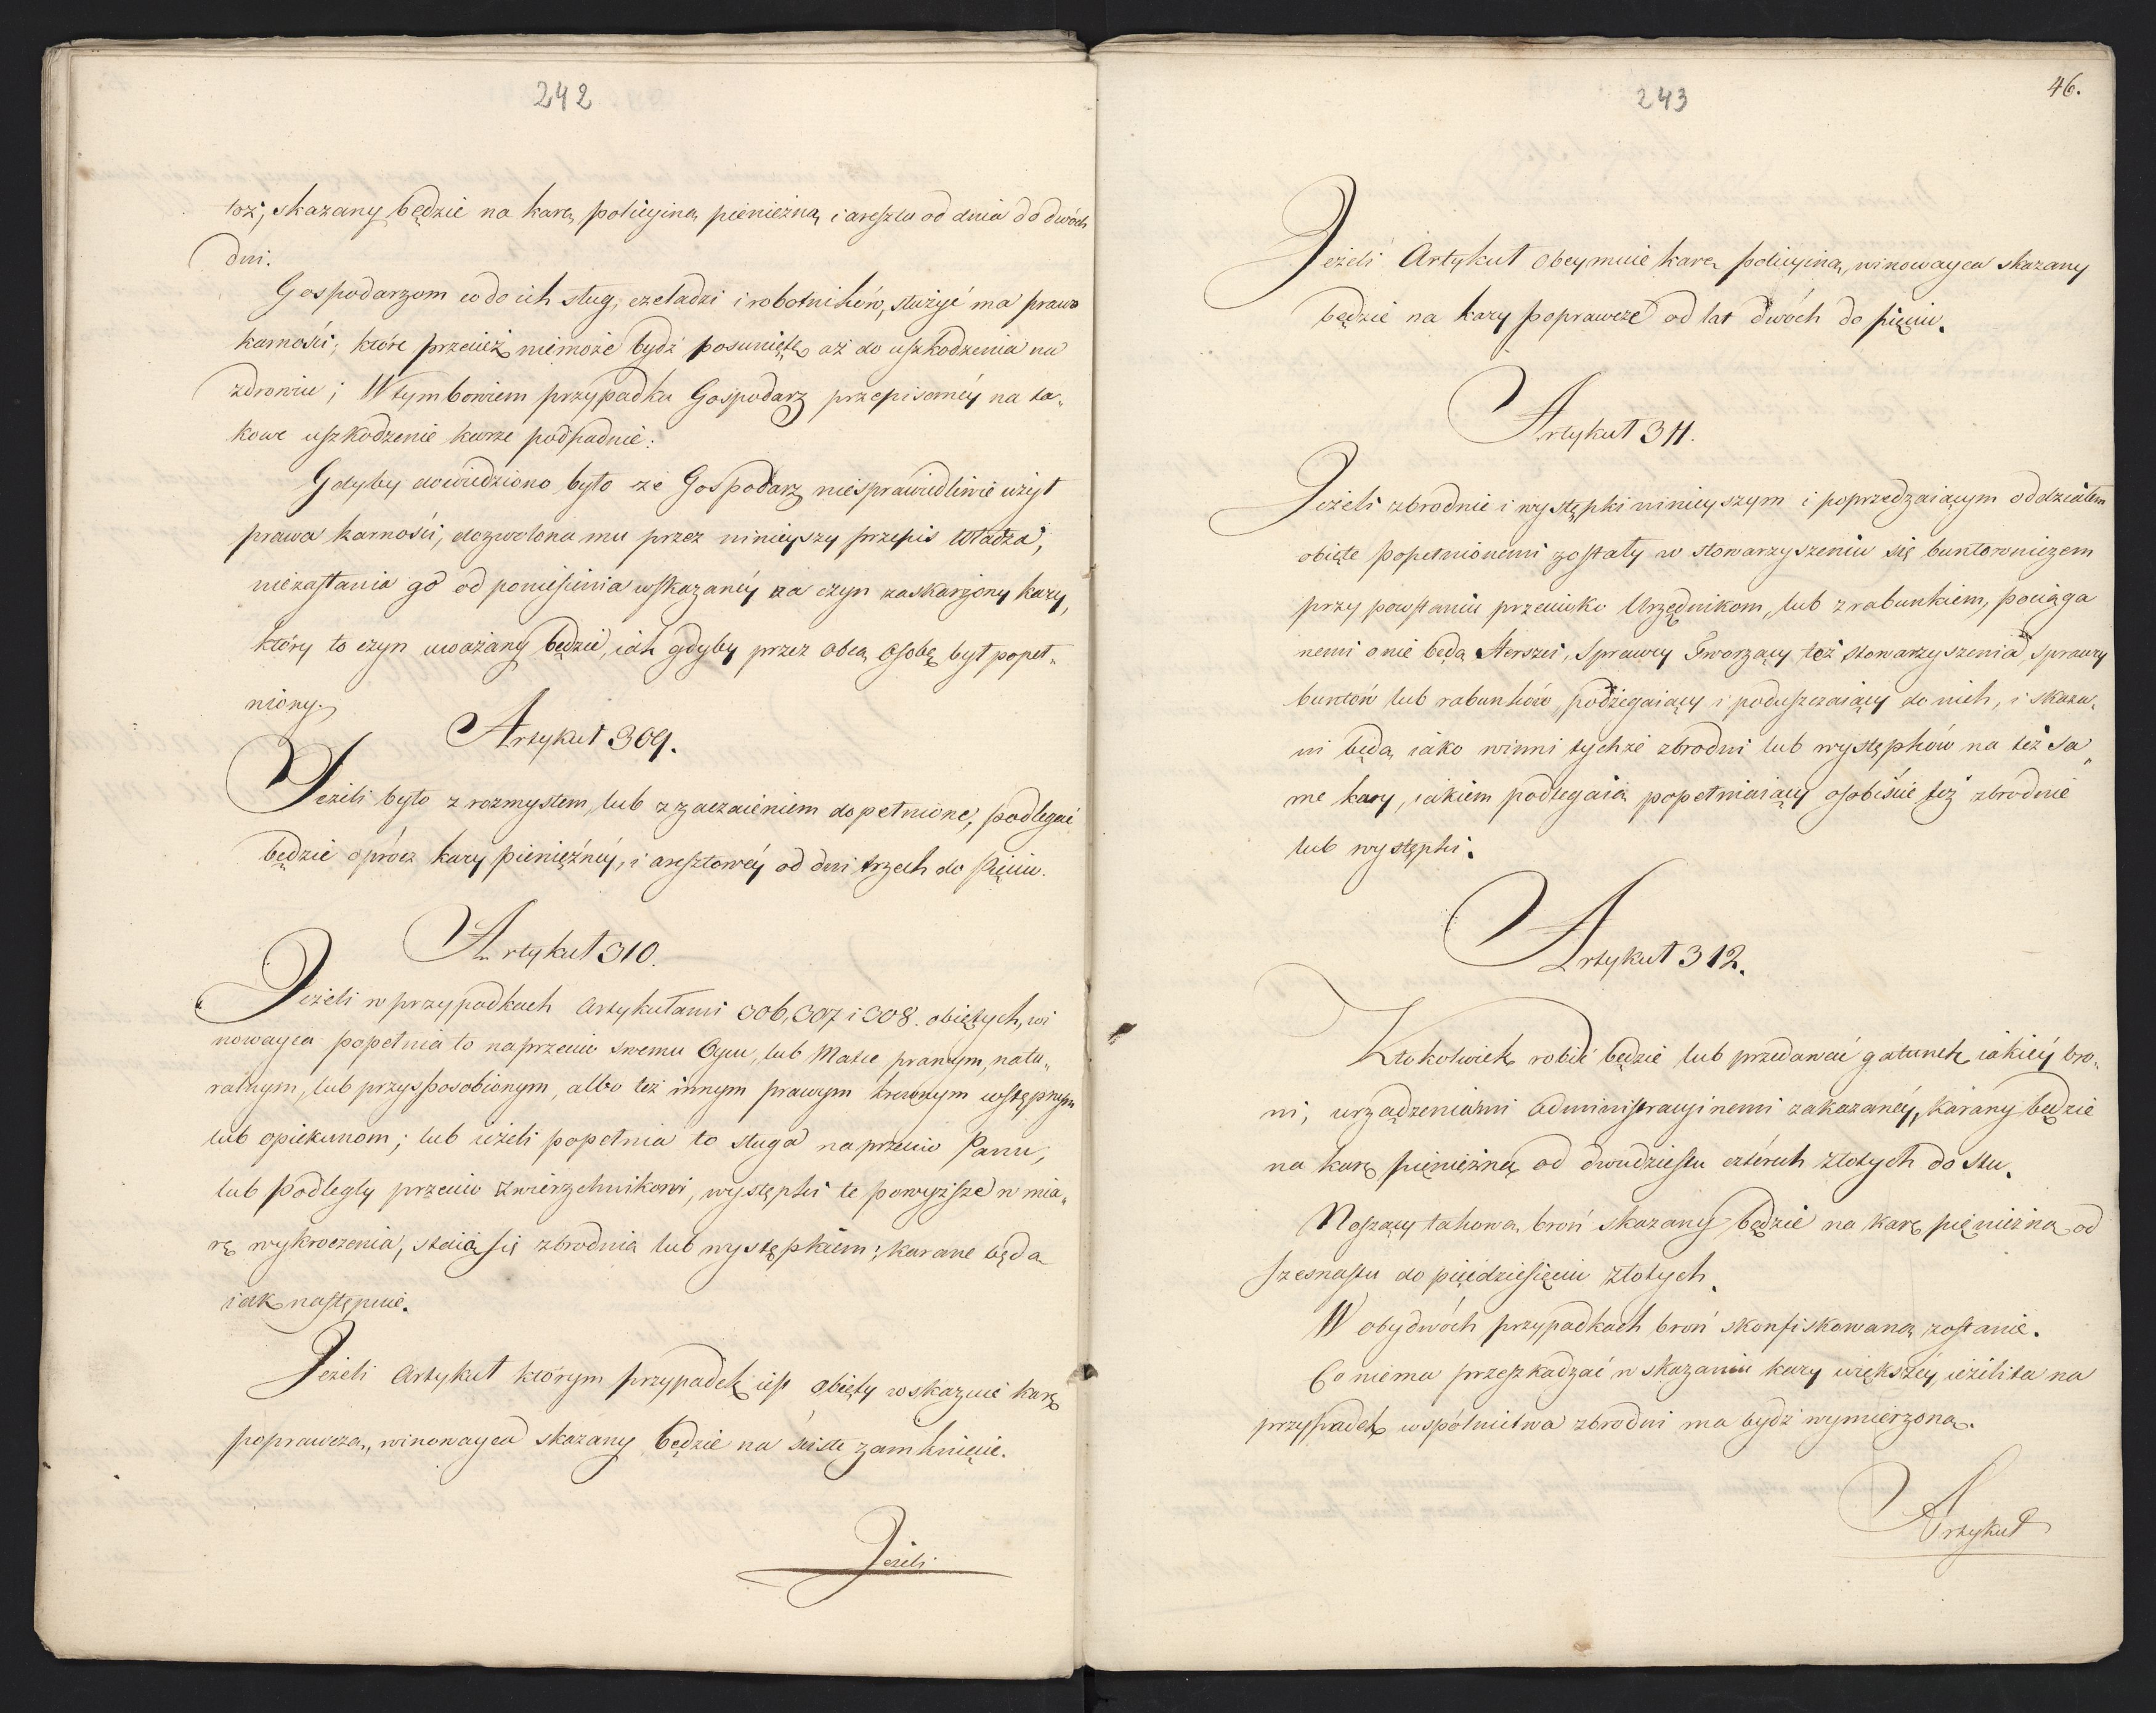 242
toż, skazany będzie na karę policyiną pieniężną i aresztu od dnia do dwóch
dni.
Gospodarzom co do ich sług, czeladzi i robotników, służyć ma prawo
karności, które przecież niemoże bydź posunięte aż do uszkodzenia na
zdrowiu; W tym bowiem przypadku Gospodarz przepisanéy na ta„
kowe uszkodzenie karze podpadnie:
Gdyby dowiedziono było że Gospodarz niesprawiedliwie użył
prawa karności, dozwolona mu przez ninieyszy przepis Władza,
niezasłania go od poniesienia wskazanéy za czyn zaskarżony kary,
który to czyn uważany będzie, iak gdyby przez obcą Osobę był popeł„
niony.
Artykuł 309.
Jeżeli było z rozmysłem, lub z zaczaieniem dopełnione, podlegać
będzie oprócz kary pieniężnéy, i aresztowéy od dni trzech do pięciu.
Artykuł 310.
Jeżeli w przypadkach Artykułami 306, 307 i 308. obiętych, wi
nowayca popełnia to naprzeciw swemu Oycu, lub Matce prawym, natu„
ralnym, lub przysposobionym, albo też innym prawym krewnym wstępnym
lub opiekunom; lub ieżeli popełnia to sługa naprzeciw Panu,
lub Podległy przeciw Zwierzchnikowi, występki te powyższe w mia„
rę wykroczenia, staią się zbrodnią lub występkiem; karane będą
iak następuie.
Jeżeli Artykuł którym przypadek iest obięty wskazuie karę
poprawczą, winowayca skazany będzie na ściste zamknięcie.
Jeżeli
243
46.
Jeżeli Artykuł obeymuie karę policyiną, winowayca skazany
będzie na kary poprawcze od lat dwóch do pięciu.
Artykuł 311.
Jeżeli zbrodnie i występki ninieyszym i poprzedzaiącym oddziałem
obięte popełnionemi zostały w stowarzyszeniu się buntowniczem
przy powstaniu przeciwko Urzędnikom, lub z rabunkiem, pociąga
nemi o nie będą Herszci, Sprawcy Tworzący też stowarzyszenia, sprawcy
buntów lub rabunków, podżegaiący i poduszczaiący do nich, i skaza„
ni będą iako winni tychże zbrodni lub występków na też sa„
me kary, iakiem podlegaią popełniaiący osobiście też zbrodnie
lub występki.
Artykuł 312.
Ktokolwiek robić będzie lub przedawać gatunek iakiéy bro„
ni, urządzeniami administracyinemi zakazanéy, karany będzie
na karę pieniężną od dwudziestu czterech złotych do stu.
Noszący takową broń skazany będzie na karę pieniężną od
szesnastu do pięćdziesięciu złotych.
W obydwóch przypadkach broń skonfiskowaną zostanie.
Co niema przeszkadzać w skazaniu kary większéy, ieżeli ta na
przypadek wspólnictwa zbrodni ma bydź wymierzoną.
Artykuł